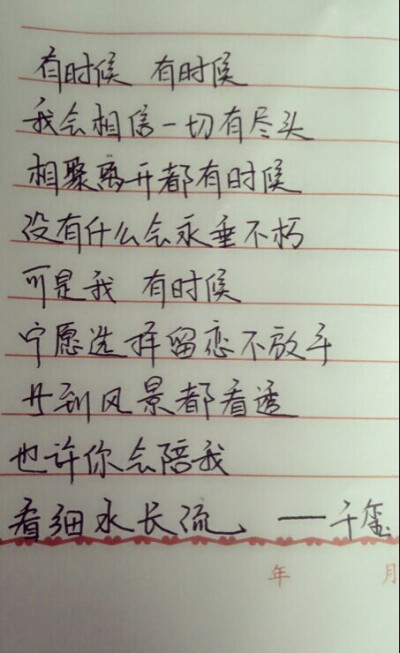 有时候 有时候
我会相信一切有尽头
相聚离开都有时候
没有什么会永垂不朽
可是我 有时候
宁愿选择留恋不放手
等到风景都看透
也许你会陪我
看细水长流、 ——千玺
年 月